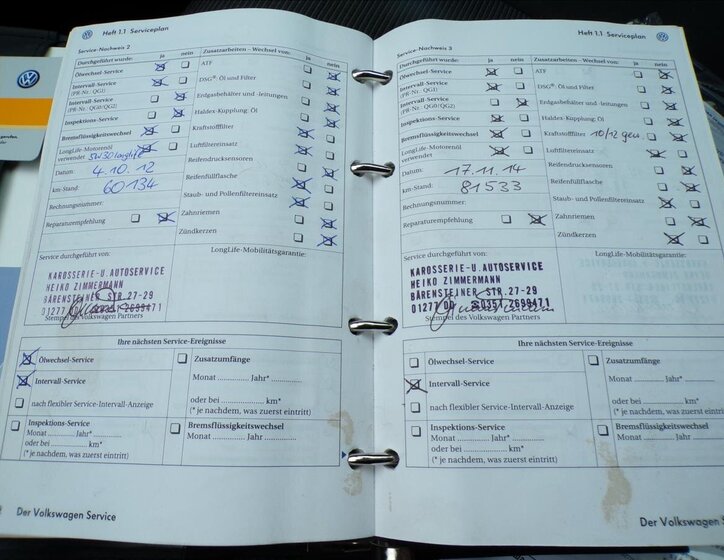 Heft 1.1 Serviceplan
Service-Nachweis 2
Durchgeführt wurde: ja nein
Ölwechsel-Service
Intervall-Service
(PR-Nr.: QG1)
Intervall-Service
(PR-Nr.: QG0/QG2)
Inspektions-Service
Bremsflüssigkeitswechsel
LongLife-Motorenöl
verwendet 5W30 longlife
Datum: 4.10.12
km-Stand: 60134
Rechnungsnummer:
Reparaturempfehlung
Zusatzarbeiten – Wechsel von: ja nein
ATF
DSG®: Öl und Filter
Erdgasbehälter und -leitungen
Haldex-Kupplung: Öl
Kraftstofffilter
Luftfiltereinsatz
Reifendrucksensoren
Reifenfüllflasche
Staub- und Pollenfiltereinsatz
Zahnriemen
Zündkerzen
Service durchgeführt von:
LongLife-Mobilitätsgarantie:
KAROSSERIE-U. AUTOSERVICE
HEIKO ZIMMERMANN
BÄRENSTEINER STR. 27-29
01277 DD 0351 2699471
Stempel des Volkswagen Partners
Ihre nächsten Service-Ereignisse
Ölwechsel-Service
Intervall-Service
nach flexibler Service-Intervall-Anzeige
Zusatzumfänge
Monat ............ Jahr* ............
oder bei ............ km*
(* je nachdem, was zuerst eintritt)
Inspektions-Service
Monat ............ Jahr* ............
oder bei ............ km*
(* je nachdem, was zuerst eintritt)
Bremsflüssigkeitswechsel
Monat ............ Jahr ............
Der Volkswagen Service
Heft 1.1 Serviceplan
Service-Nachweis 3
Durchgeführt wurde: ja nein
Ölwechsel-Service
Intervall-Service
(PR-Nr.: QG1)
Intervall-Service
(PR-Nr.: QG0/QG2)
Inspektions-Service
Bremsflüssigkeitswechsel
LongLife-Motorenöl
verwendet
Datum: 17.11.14
km-Stand: 81533
Rechnungsnummer:
Reparaturempfehlung
Zusatzarbeiten – Wechsel von: ja nein
ATF
DSG®: Öl und Filter
Erdgasbehälter und -leitungen
Haldex-Kupplung: Öl
Kraftstofffilter 10/12 gew
Luftfiltereinsatz
Reifendrucksensoren
Reifenfüllflasche
Staub- und Pollenfiltereinsatz
Zahnriemen
Zündkerzen
Service durchgeführt von:
LongLife-Mobilitätsgarantie:
KAROSSERIE-U. AUTOSERVICE
HEIKO ZIMMERMANN
BÄRENSTEINER STR. 27-29
01277 DD 0351 2699471
Stempel des Volkswagen Partners
Ihre nächsten Service-Ereignisse
Ölwechsel-Service
Intervall-Service
nach flexibler Service-Intervall-Anzeige
Zusatzumfänge
Monat ............ Jahr* ............
oder bei ............ km*
(* je nachdem, was zuerst eintritt)
Inspektions-Service
Monat ............ Jahr* ............
oder bei ............ km*
(* je nachdem, was zuerst eintritt)
Bremsflüssigkeitswechsel
Monat ............ Jahr ............
Der Volkswagen